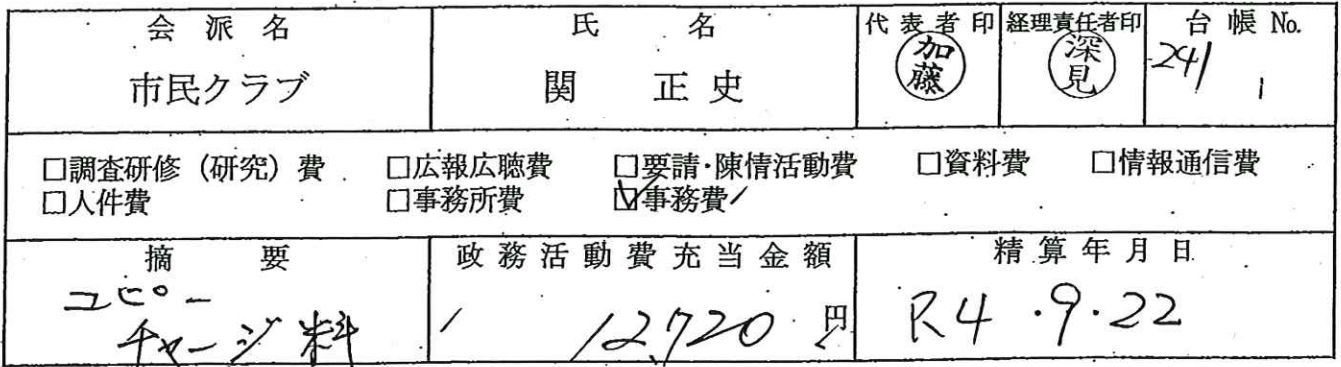 会派名 氏名 代表者印 経理責任者印 台帳 No.
市民クラブ 関 正史 加藤 深見 241 1
□調査研修（研究）費 □広報広聴費 □要請・陳情活動費 □資料費 □情報通信費
□人件費 □事務所費 ☑事務費
摘要 政務活動費充当金額 精算年月日
コピー
チャージ料 12,720 円 R4・9・22